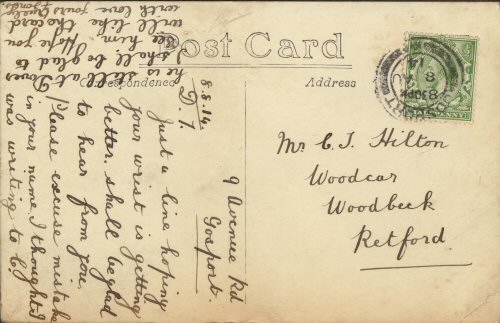 Post Card
Correspondence
Address
9 Avenue Rd
Gosport.
8.8.14.
D. T.
Just a line hoping
your wrist is getting
better. shall be glad
to hear from you.
Please excuse mistake
in your name, I thought I
was writing to C.
he is still at Dover
I shall be glad to
see him. Hope you
will like the card
with love yours
Mr C. J. Hilton
Woodcar
Woodbeck
Retford
GOSPORT
8 AU
14